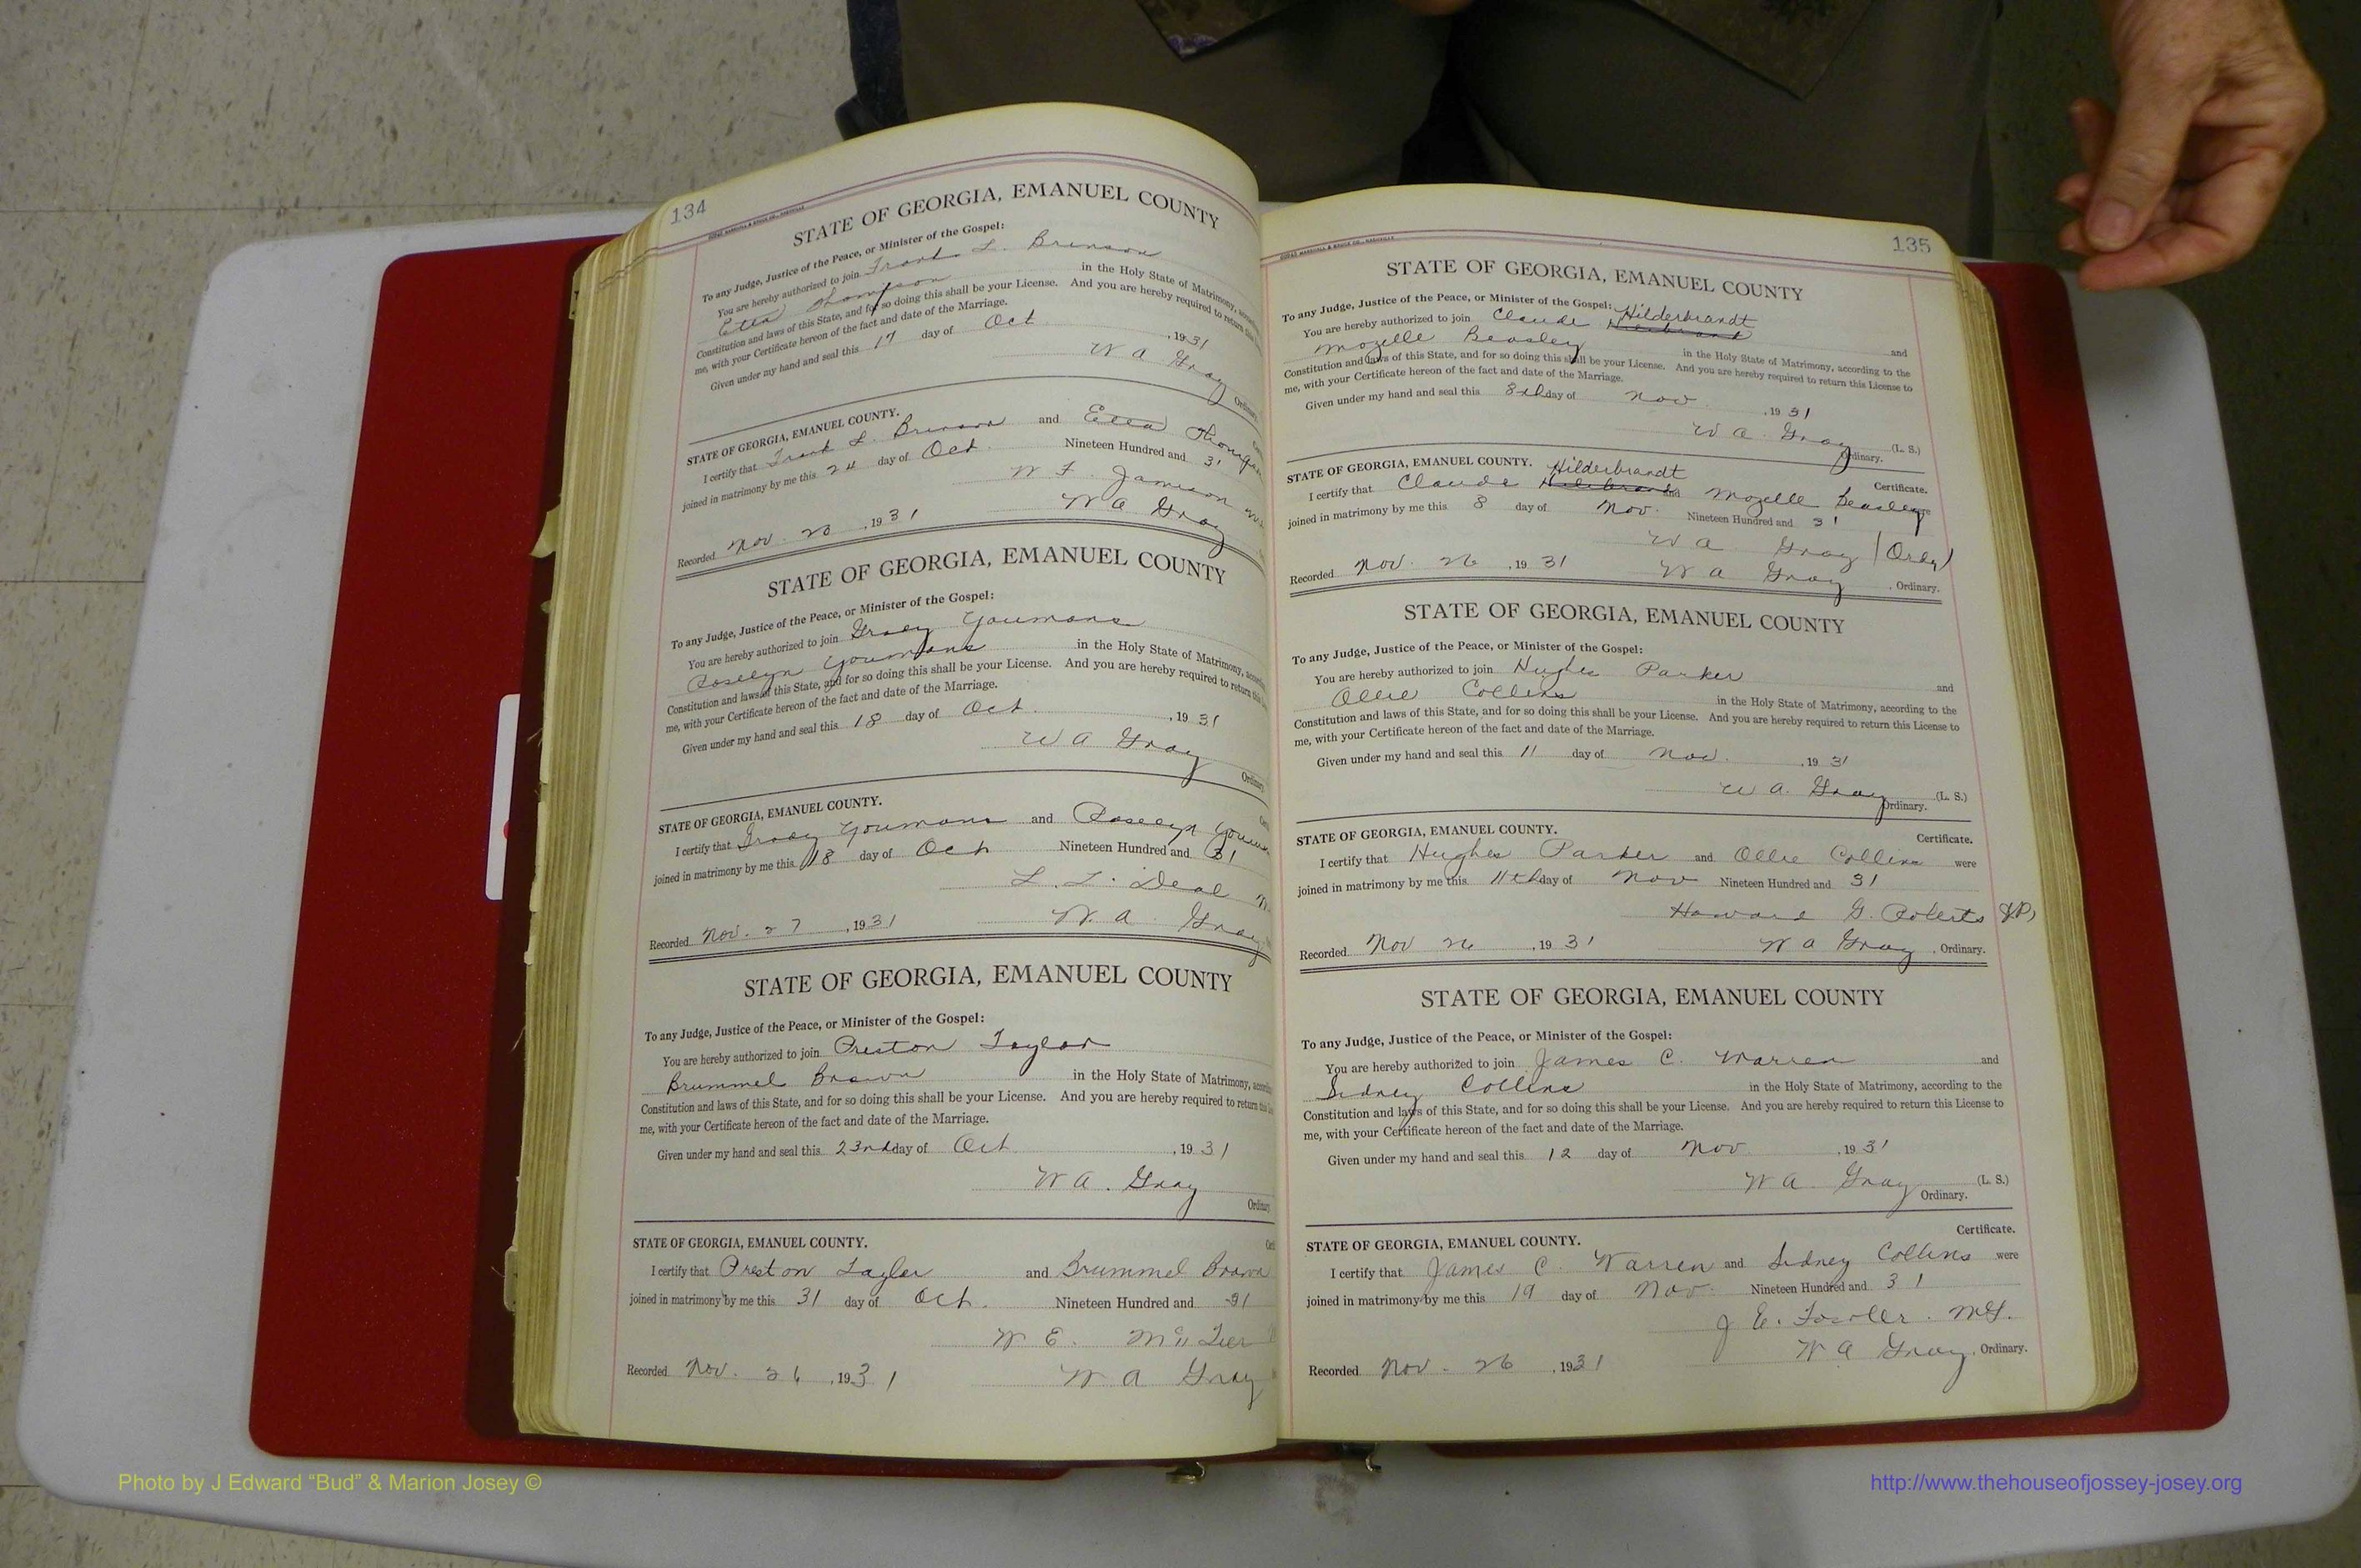 134
STATE OF GEORGIA, EMANUEL COUNTY
To any Judge, Justice of the Peace, or Minister of the Gospel:
You are hereby authorized to join Frank L. Brinson
Etta Thompson in the Holy State of Matrimony,
Constitution and laws of this State, and for so doing this shall be your License. And you are hereby required to return this
me, with your Certificate hereon of the fact and date of the Marriage.
Given under my hand and seal this 17 day of Oct , 1931
W A Gray
Ordinary
STATE OF GEORGIA, EMANUEL COUNTY.
I certify that Frank L. Brinson and Etta Thompson
joined in matrimony by me this 24 day of Oct. Nineteen Hundred and 31
W. F. Jameson
Recorded Nov. , 1931 W A Gray
STATE OF GEORGIA, EMANUEL COUNTY
To any Judge, Justice of the Peace, or Minister of the Gospel:
You are hereby authorized to join Grady Youmans
Roselyn Youmans in the Holy State of Matrimony,
Constitution and laws of this State, and for so doing this shall be your License. And you are hereby required to return this
me, with your Certificate hereon of the fact and date of the Marriage.
Given under my hand and seal this 18 day of Oct. , 1931
W A Gray
Ordinary.
STATE OF GEORGIA, EMANUEL COUNTY.
I certify that Grady Youmans and Roselyn
joined in matrimony by me this 18 day of Oct Nineteen Hundred and 31
L. L. Deal
Recorded Nov. 27 , 1931 W. A. Gray
STATE OF GEORGIA, EMANUEL COUNTY
To any Judge, Justice of the Peace, or Minister of the Gospel:
You are hereby authorized to join Preston Taylor
Brummel Brown in the Holy State of Matrimony,
Constitution and laws of this State, and for so doing this shall be your License. And you are hereby required to return this
me, with your Certificate hereon of the fact and date of the Marriage.
Given under my hand and seal this 23rd day of Oct. , 1931
W A. Gray
Ordinary
STATE OF GEORGIA, EMANUEL COUNTY.
I certify that Preston Taylor and Brummel Brown
joined in matrimony by me this 31 day of Oct. Nineteen Hundred and 31
W E.
Recorded Nov. 26 , 1931 W A Gray
135
STATE OF GEORGIA, EMANUEL COUNTY
To any Judge, Justice of the Peace, or Minister of the Gospel:
You are hereby authorized to join Claude Hilderbrandt and
Mozelle Beasley in the Holy State of Matrimony, according to the
Constitution and laws of this State, and for so doing this shall be your License. And you are hereby required to return this License to
me, with your Certificate hereon of the fact and date of the Marriage.
Given under my hand and seal this 8th day of Nov. , 1931
W A. Gray (L. S.)
Ordinary.
STATE OF GEORGIA, EMANUEL COUNTY. Certificate.
I certify that Claude Hilderbrandt and Mozelle Beasley were
joined in matrimony by me this 8 day of Nov. Nineteen Hundred and 31
W A Gray (Ordy)
Recorded Nov. 26 , 1931 W A Gray , Ordinary.
STATE OF GEORGIA, EMANUEL COUNTY
To any Judge, Justice of the Peace, or Minister of the Gospel:
You are hereby authorized to join Hughes Parker and
Ollie Collins in the Holy State of Matrimony, according to the
Constitution and laws of this State, and for so doing this shall be your License. And you are hereby required to return this License to
me, with your Certificate hereon of the fact and date of the Marriage.
Given under my hand and seal this 11 day of Nov. , 1931
W A. Gray (L. S.)
Ordinary.
STATE OF GEORGIA, EMANUEL COUNTY. Certificate.
I certify that Hughes Parker and Ollie Collins were
joined in matrimony by me this 11th day of Nov Nineteen Hundred and 31
Howard G. Roberts JP,
Recorded Nov 26 , 1931 W A Gray , Ordinary.
STATE OF GEORGIA, EMANUEL COUNTY
To any Judge, Justice of the Peace, or Minister of the Gospel:
You are hereby authorized to join James C. Warren and
Sidney Collins in the Holy State of Matrimony, according to the
Constitution and laws of this State, and for so doing this shall be your License. And you are hereby required to return this License to
me, with your Certificate hereon of the fact and date of the Marriage.
Given under my hand and seal this 12 day of Nov , 1931
W A. Gray (L. S.)
Ordinary.
STATE OF GEORGIA, EMANUEL COUNTY. Certificate.
I certify that James C. Warren and Sidney Collins were
joined in matrimony by me this 19 day of Nov. Nineteen Hundred and 31
J E. Fowler. MG.
Recorded Nov. 26 , 1931 W A Gray, Ordinary.
Photo by J Edward “Bud” & Marion Josey ©
http://www.thehouseofjossey-josey.org